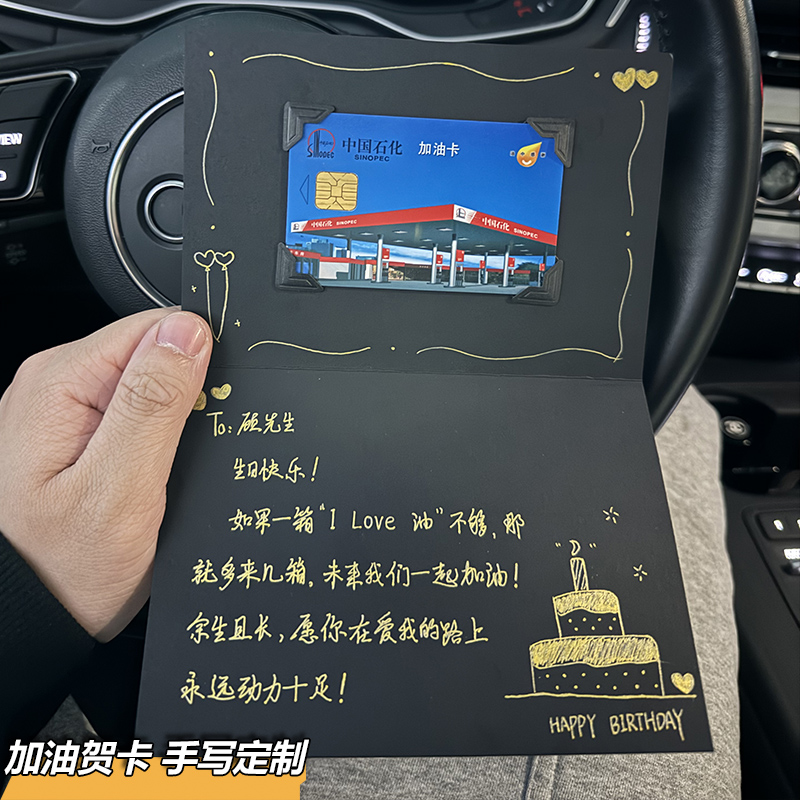 VIEW
中国石化 加油卡
SINOPEC
SINOPEC
中国石化 SINOPEC
中国石化 SINOPEC
To: 顾先生
生日快乐!
如果一箱“I Love 油”不够,那
就多来几箱,未来我们一起加油!
余生且长,愿你在爱我的路上
永远动力十足!
HAPPY BIRTHDAY
加油贺卡 手写定制